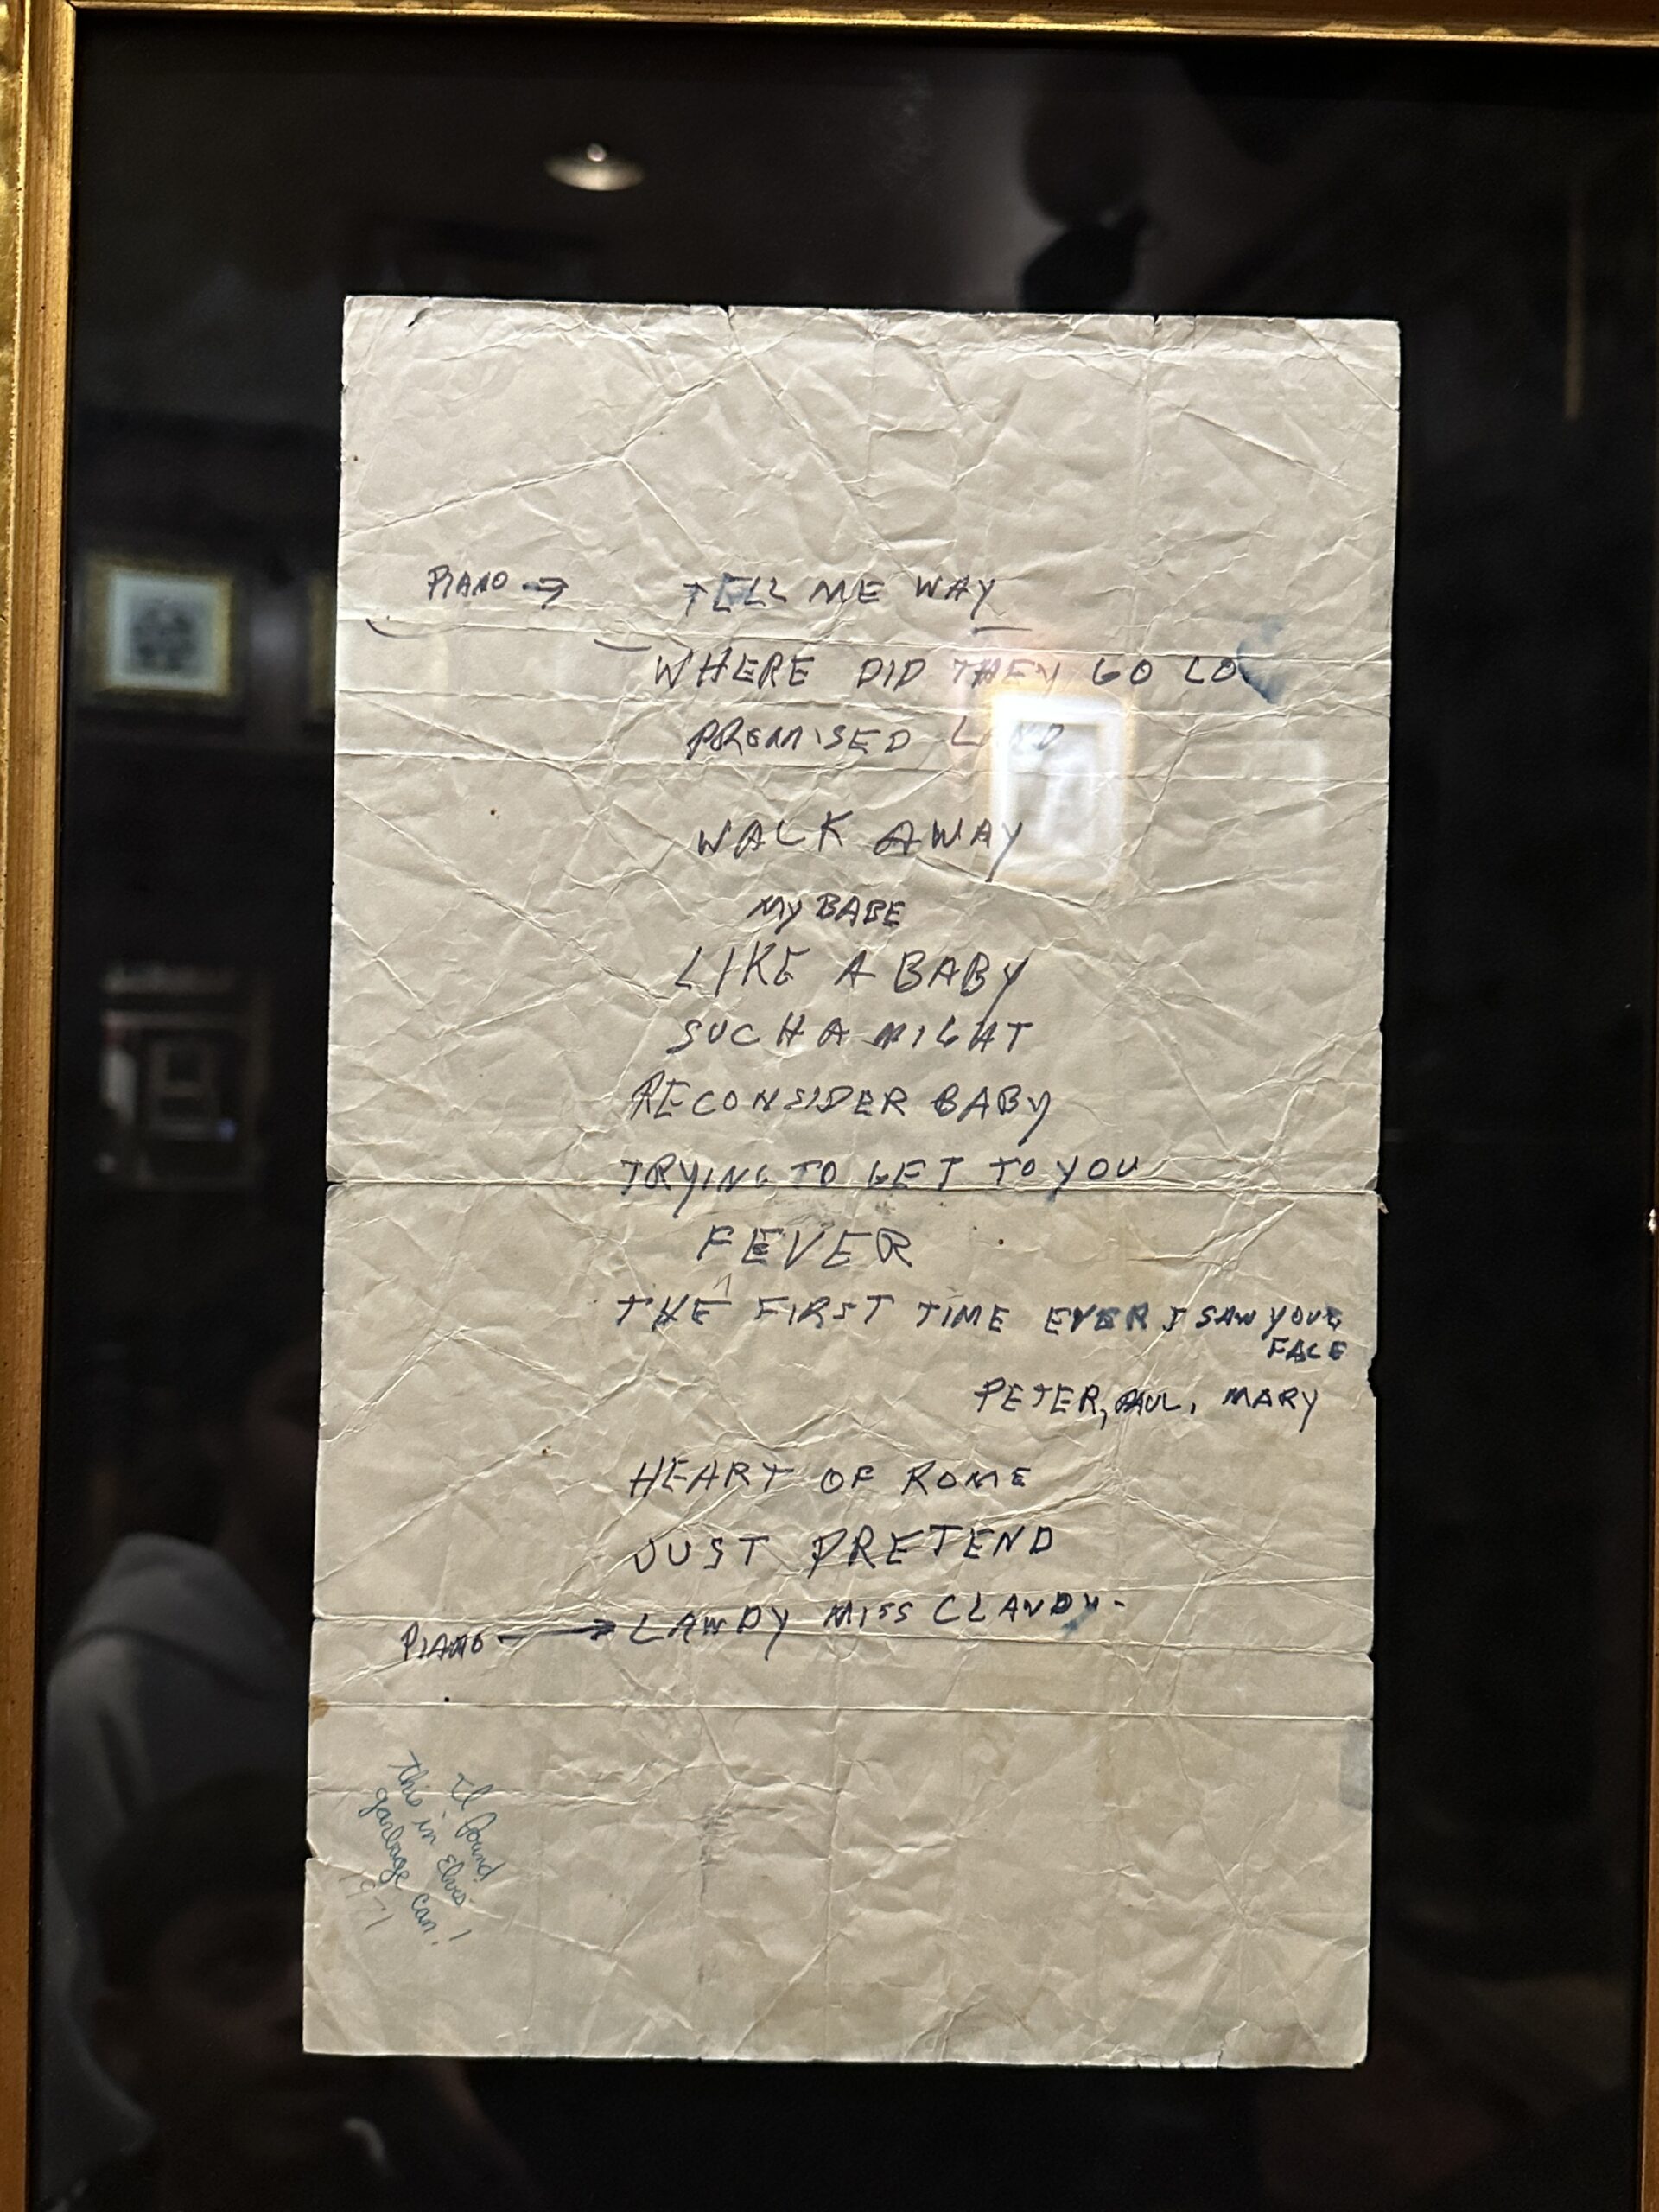 PIANO → TELL ME WAY
WHERE DID THEY GO LO
PROMISED LAND
WALK AWAY
MY BABE
LIKE A BABY
SUCH A NIGHT
RECONSIDER BABY
TRYING TO GET TO YOU
FEVER
THE FIRST TIME EVER I SAW YOUR
FACE
PETER, PAUL, MARY
HEART OF ROME
JUST PRETEND
PIANO → LAWDY MISS CLAUDY-
I found
this in Elvis
garbage can!
1971